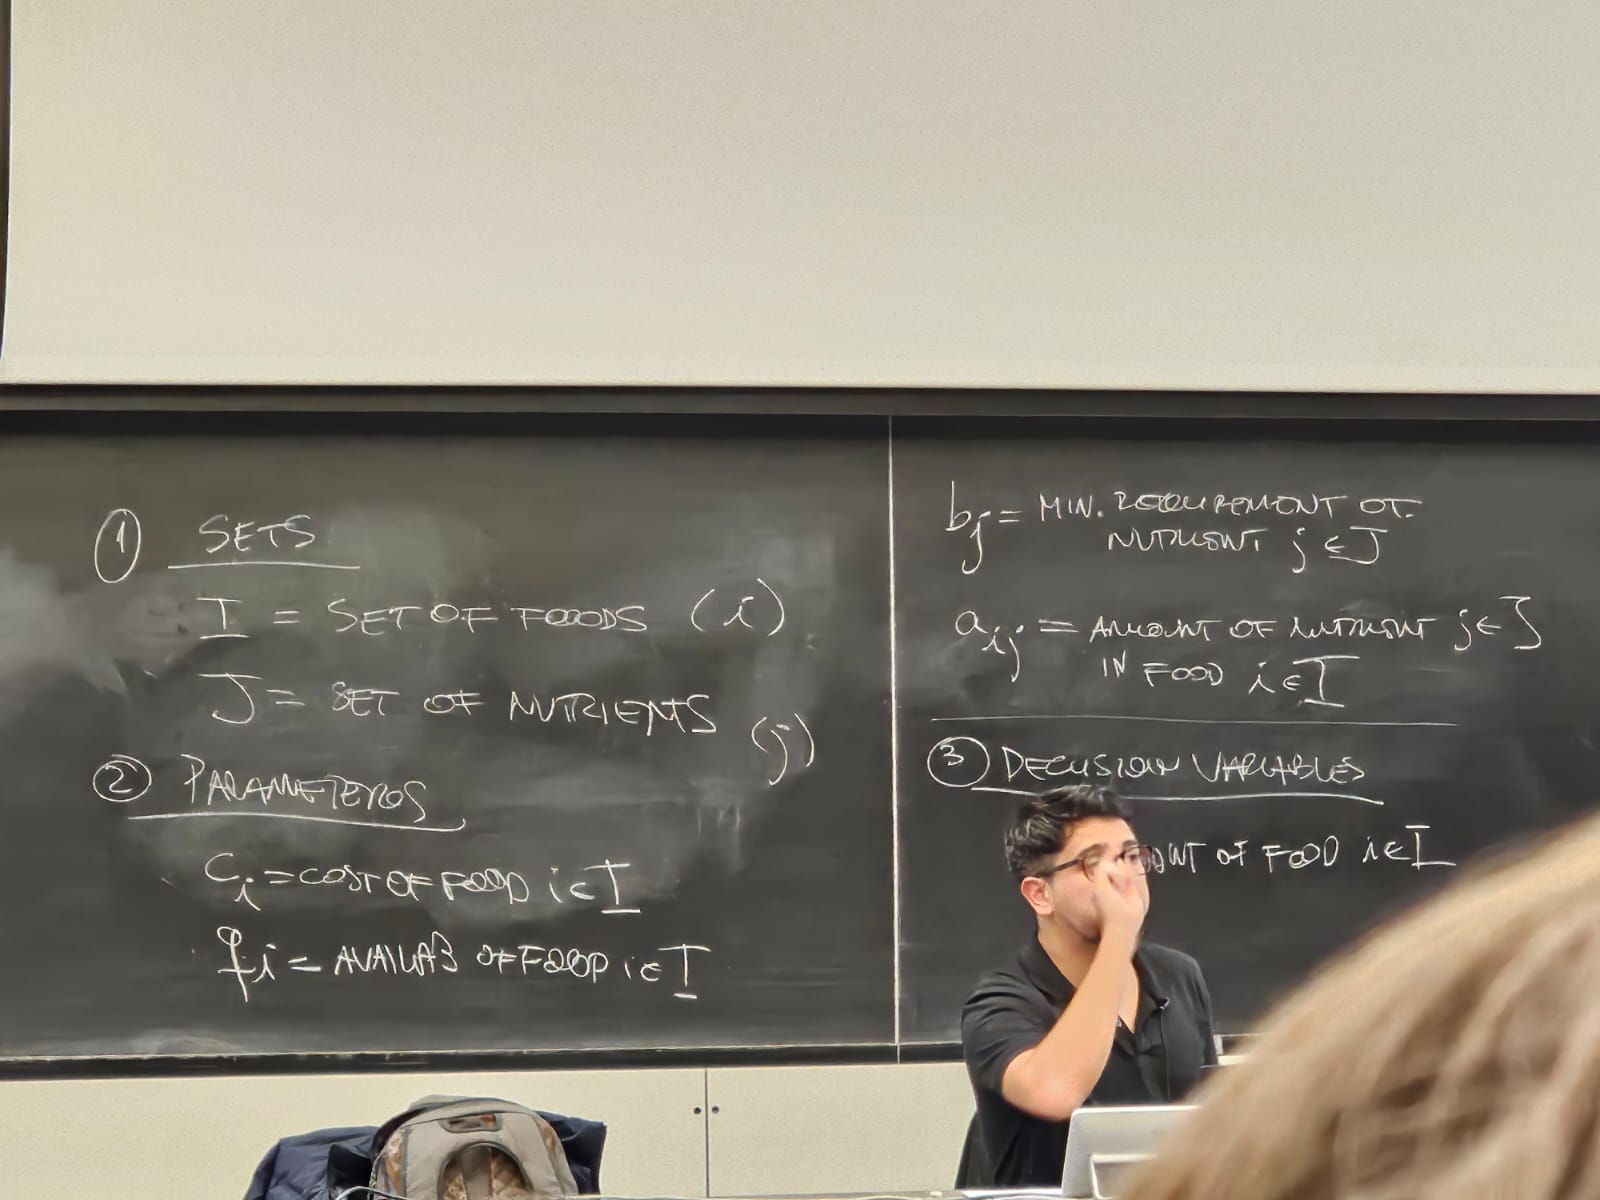 ① SETS
I = SET OF FOODS (i)
J = SET OF NUTRIENTS (j)
② PARAMETEROS
Ci = COST OF FOOD i ∈ I
qi = AVAILAB OF FOOD i ∈ I
bj = MIN. REQUIREMENT OF
NUTRIENT j ∈ J
aij = AMOUNT OF NUTRIENT j ∈ J
IN FOOD i ∈ I
③ DECISION VARIABLES
OF FOOD i ∈ I